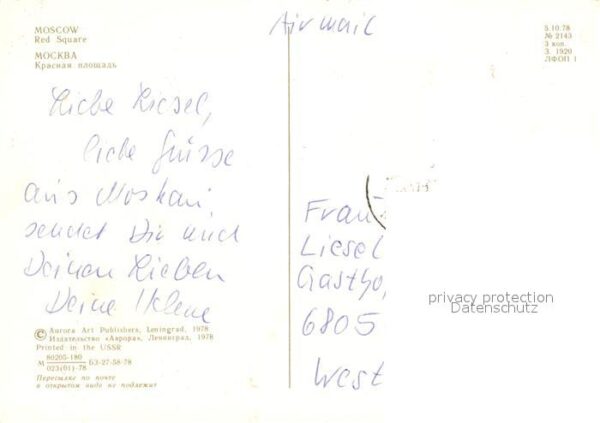 MOSCOW
Red Square
МОСКВА
Красная площадь
Airmail
5.10.78
№ 2143
3 коп.
З. 1920
ЛФОП 1
Liebe Liesel,
liebe Grüsse
aus Moskau
sendet Dir und
Deinen Lieben
Deine Helene
Frau
Liesel
Gastho
6805
West
privacy protection
Datenschutz
© Aurora Art Publishers, Leningrad, 1978
Издательство «Аврора», Ленинград, 1978
Printed in the USSR
М 80205-180 БЗ-27-58-78
023(01)-78
Пересылке по почте
в открытом виде не подлежит